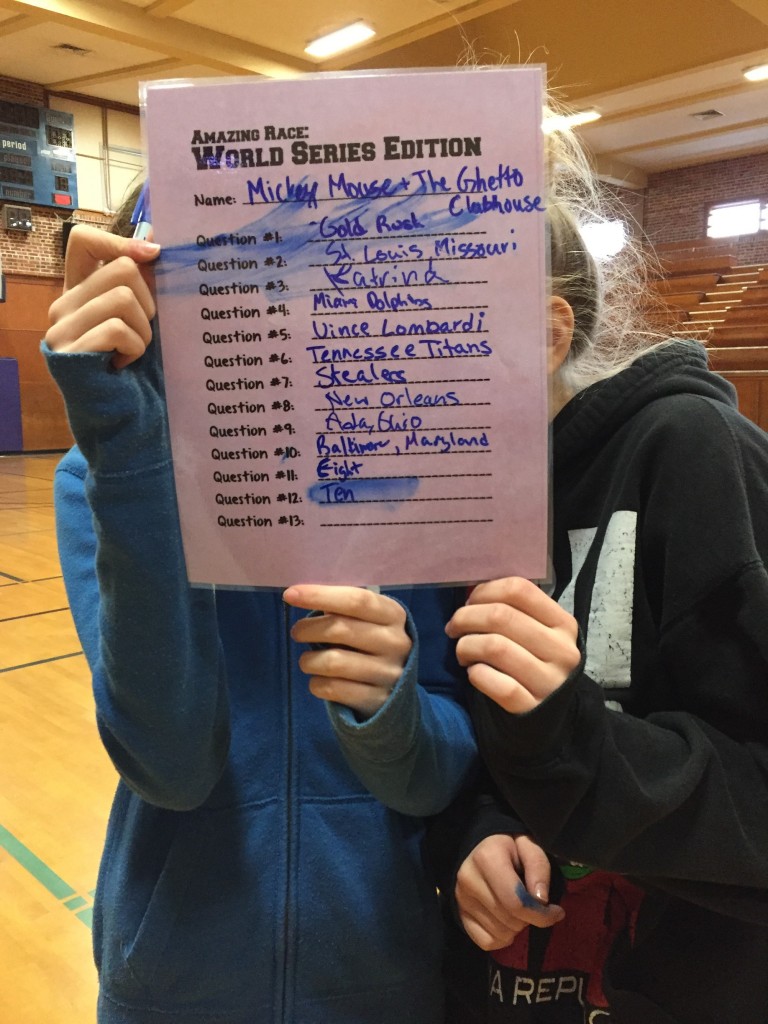 period
AMAZING RACE:
WORLD SERIES EDITION
Name: Mickey Mouse + The Ghetto
Clabhouse
Question #1: Gold Rush
Question #2: St. Louis, Missouri
Question #3: Katrina
Question #4: Miami Dolphins
Question #5: Vince Lombardi
Question #6: Tennessee Titans
Question #7: Stealers
Question #8: New Orleans
Question #9: Ada, Ohio
Question #10: Baltimore, Maryland
Question #11: Eight
Question #12: Ten
Question #13:
A REPU